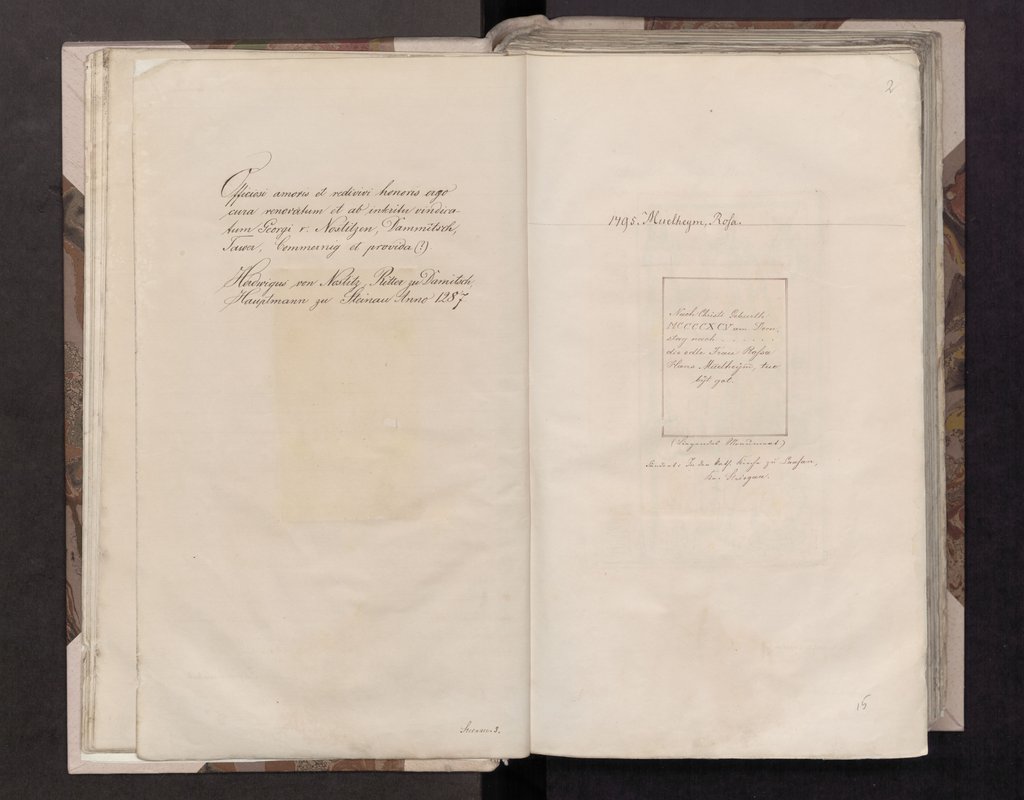 Officiosi amoris et redivivi honoris ergo
cura renovatum et ab interitu vindica
tum Georgi v. Nostitzen, Dammitsch,
Tawer, Commernig et provida (?)
Hedwigus von Nostitz, Ritter zu Damitsch,
Hauptmann zu Steinau Anno 1287
3.
2
1495. Muelheym, Rosa.
Nach Christi Geburth
MCCCCXCV am Don̄-
stag nach . . . . . .
die edle Frau Rossa
Hans Muelheÿm̄,
got.
(Liegendes Monument.)
Standort: In der kath. Kirche zu
Kr. Striegau.
15